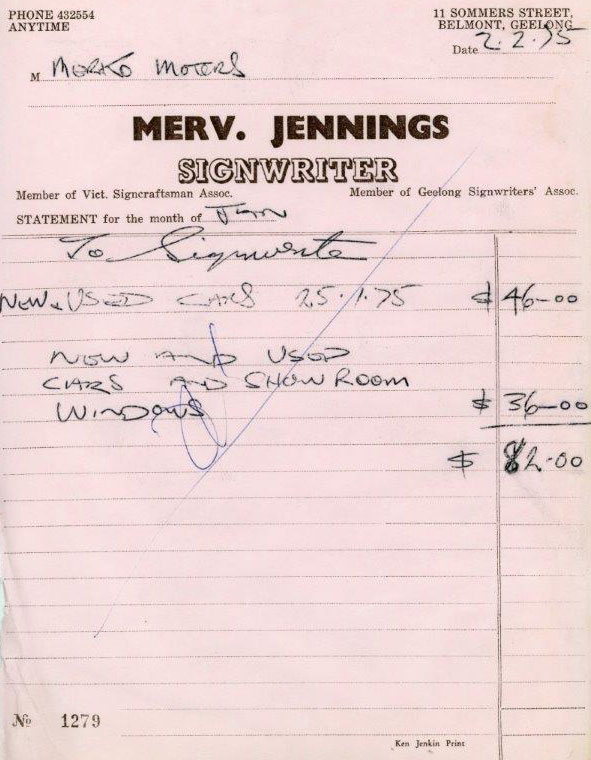 PHONE 432554
ANYTIME
11 SOMMERS STREET,
BELMONT, GEELONG
Date 2.2.75
M MERKO MOTORS
MERV. JENNINGS
SIGNWRITER
Member of Vict. Signcraftsman Assoc.
Member of Geelong Signwriters' Assoc.
STATEMENT for the month of Jan
To Signwrite
NEW & USED CARS 25.1.75 $ 46-00
NEW AND USED
CARS AND SHOWROOM
WINDOWS $ 36-00
$ 82.00
No 1279
Ken Jenkin Print